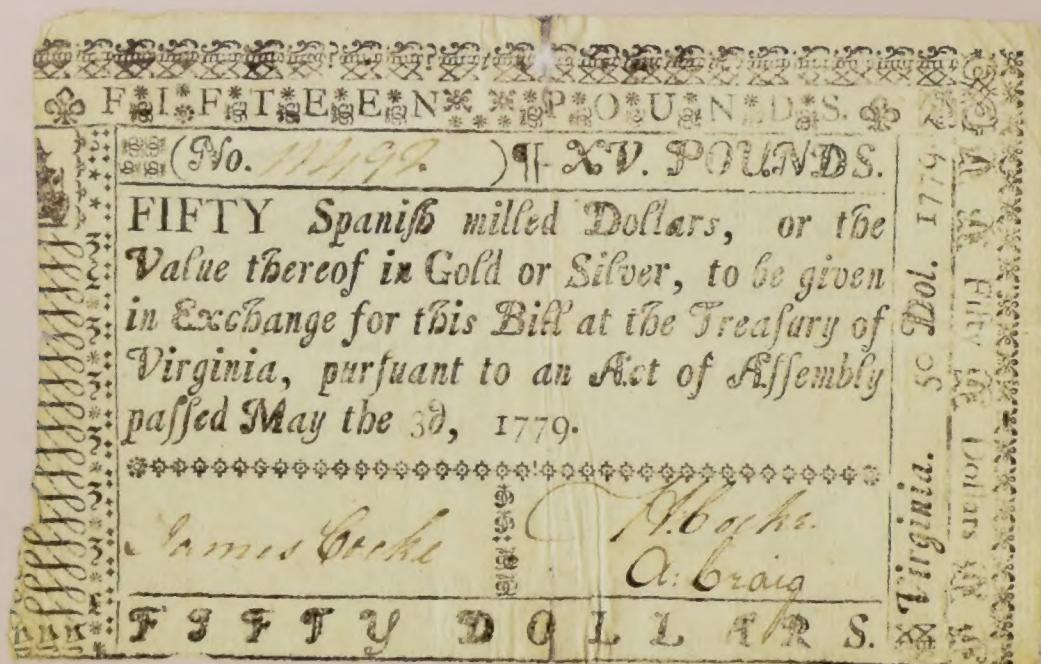 FIFTEEN POUNDS.
(No. 11499. ) XV. POUNDS.
FIFTY Spaniſh milled Dollars, or the
Value thereof in Gold or Silver, to be given
in Exchange for this Bill at the Treaſury of
Virginia, purſuant to an Act of Aſſembly
paſſed May the 3d, 1779.
James Cocke
H. Cocke.
A. Craig
FIFTY DOLLARS.
Virginia. 50 Dol. 1779
Fifty Dollars